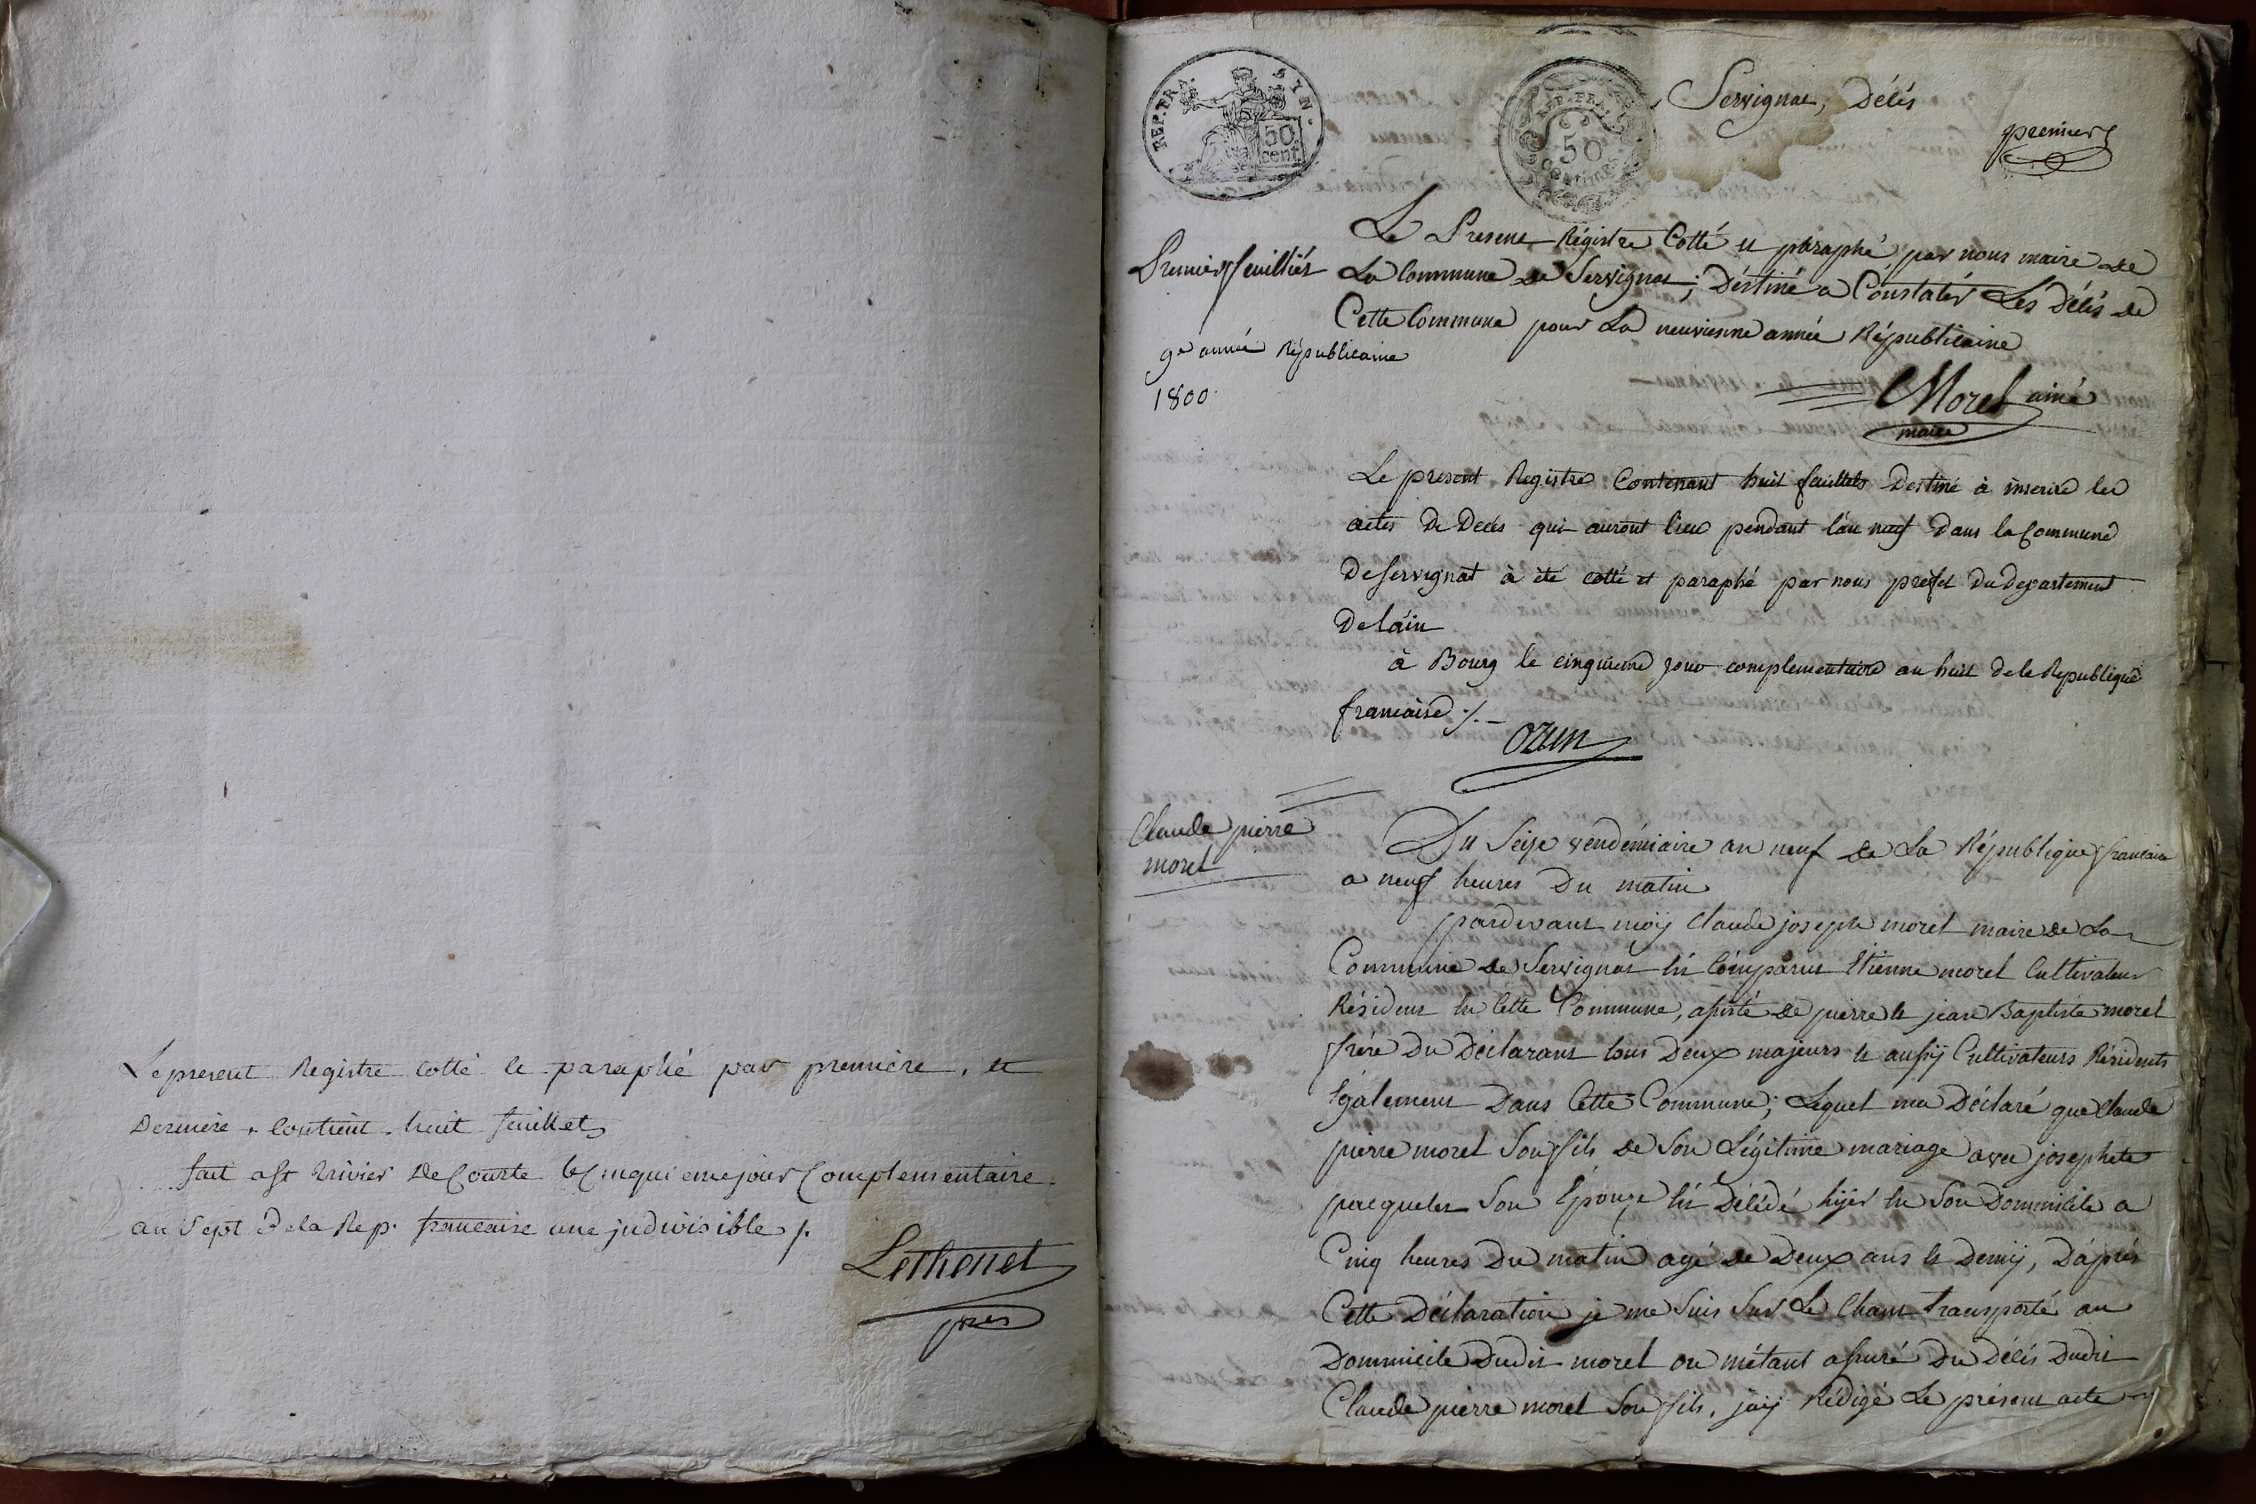 Le present Registre cotté et paraphé par premiere, et
Derniere, Contient huit feuillets
fait a St trivier De Courte le Cinquieme jour Complementaire
an Sept de la Rep. francaise une indivisible /.
Lethenet
pres
REP. FRA. 
50 cent.
REP. FRA.
50
Centimes
Servignat, Décés
premier
Le Present Régistre Cotté et paraphé par nous maire de
Premier feuillét
La Commune de Servignat; Déstiné a Constatér Les Décés de
Cette Commune pour La neuvienne année Républicaine
9e année Républicaine
1800.
Morel ainé
maire
Le present Registre Contenant huit feuillets Destiné à inscrire les
actes De Decès qui auront lieu pendant l'an neuf Dans la Commune
De Servignat à été cotté et paraphé par nous préfet Du Departement
De l'ain
à Bourg le cinquieme jour complementaire an huit de la Republique
francaise ./.
ozun
Claude pierre
morel
Du Seize vendémiaire an neuf de La République francaise
a neuf heures Du matin
pardevant moÿ Claude joseph morel maire de La
Commune de Servignat Est Comparut Etienne morel Cultivateur
Résident En Cette Commune, assisté de pierre et jean Baptiste morel
frére Du Déclarant tous Deux majeurs et aussÿ Cultivateurs Résidents
Egalement Dans Cette Commune; Lequel ma Déclaré que Claude
pierre morel Son fils de Son Légitime mariage avec josephete
Son Epouze Est Décédé hÿér En Son Dommicile a
Cinq heures Du matin agé de Deux ans et Demÿ, D'aprés
Cette Déclaration je me Suis Sur Le Chant transporté au
Dommicile Dudit morel ou m'étant assuré Du Décés Dudit
Claude pierre morel Son fils, jaÿ Rédigé Le présent acte